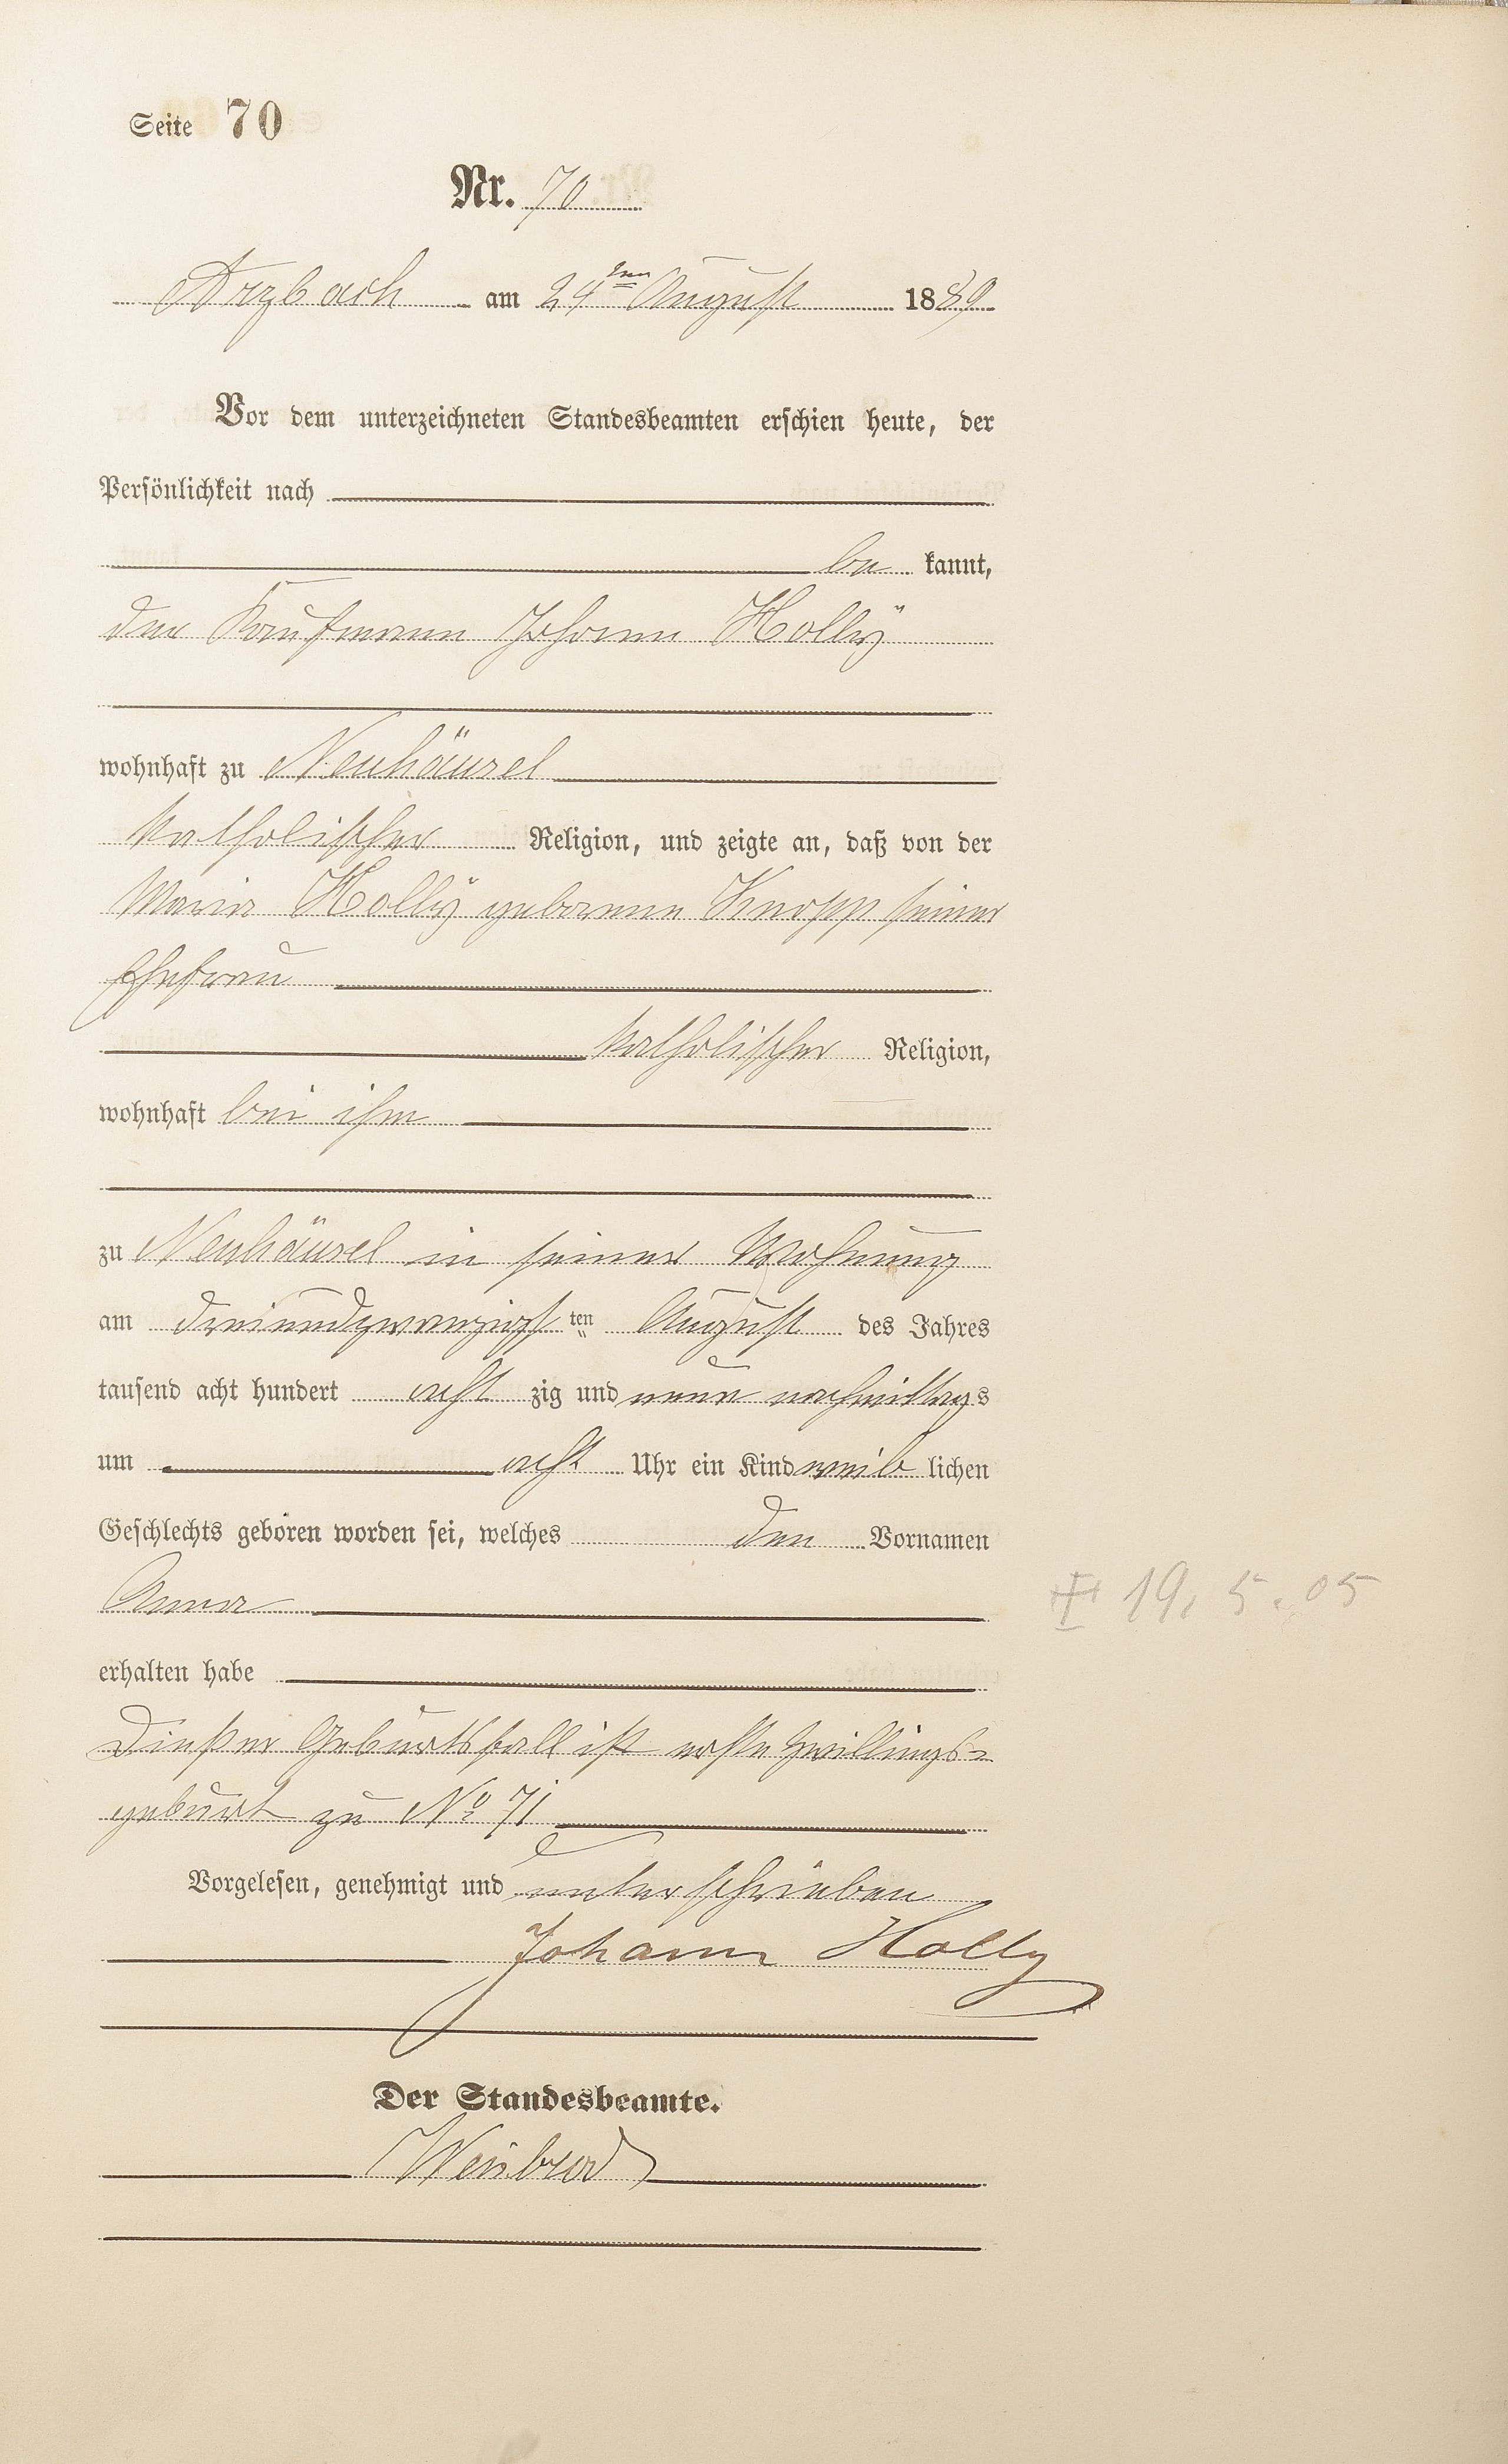 Seite 70
Nr. 70
Arzbach am 24ten August 1889
Vor dem unterzeichneten Standesbeamten erschien heute, der
Persönlichkeit nach
be kannt,
der Kaufmann Johann Hollÿ
wohnhaft zu Neuhäusel
katholischer Religion, und zeigte an, daß von der
Maria Hollÿ geborene Knopp seiner
Ehefrau
katholischer Religion,
wohnhaft bei ihm
zu Neuhäusel in seiner Wohnung
am dreiundzwanzigsten August des Jahres
tausend acht hundert acht zig und neun nachmittags
um acht Uhr ein Kind weib lichen
Geschlechts geboren worden sei, welches den Vornamen
Anna
19. 5. 05
erhalten habe
Dießer Geburtsfall ist erste Zwillings-
geburt zu No 71
Vorgelesen, genehmigt und unterschrieben
Johann Holly
Der Standesbeamte.
Weinbrod